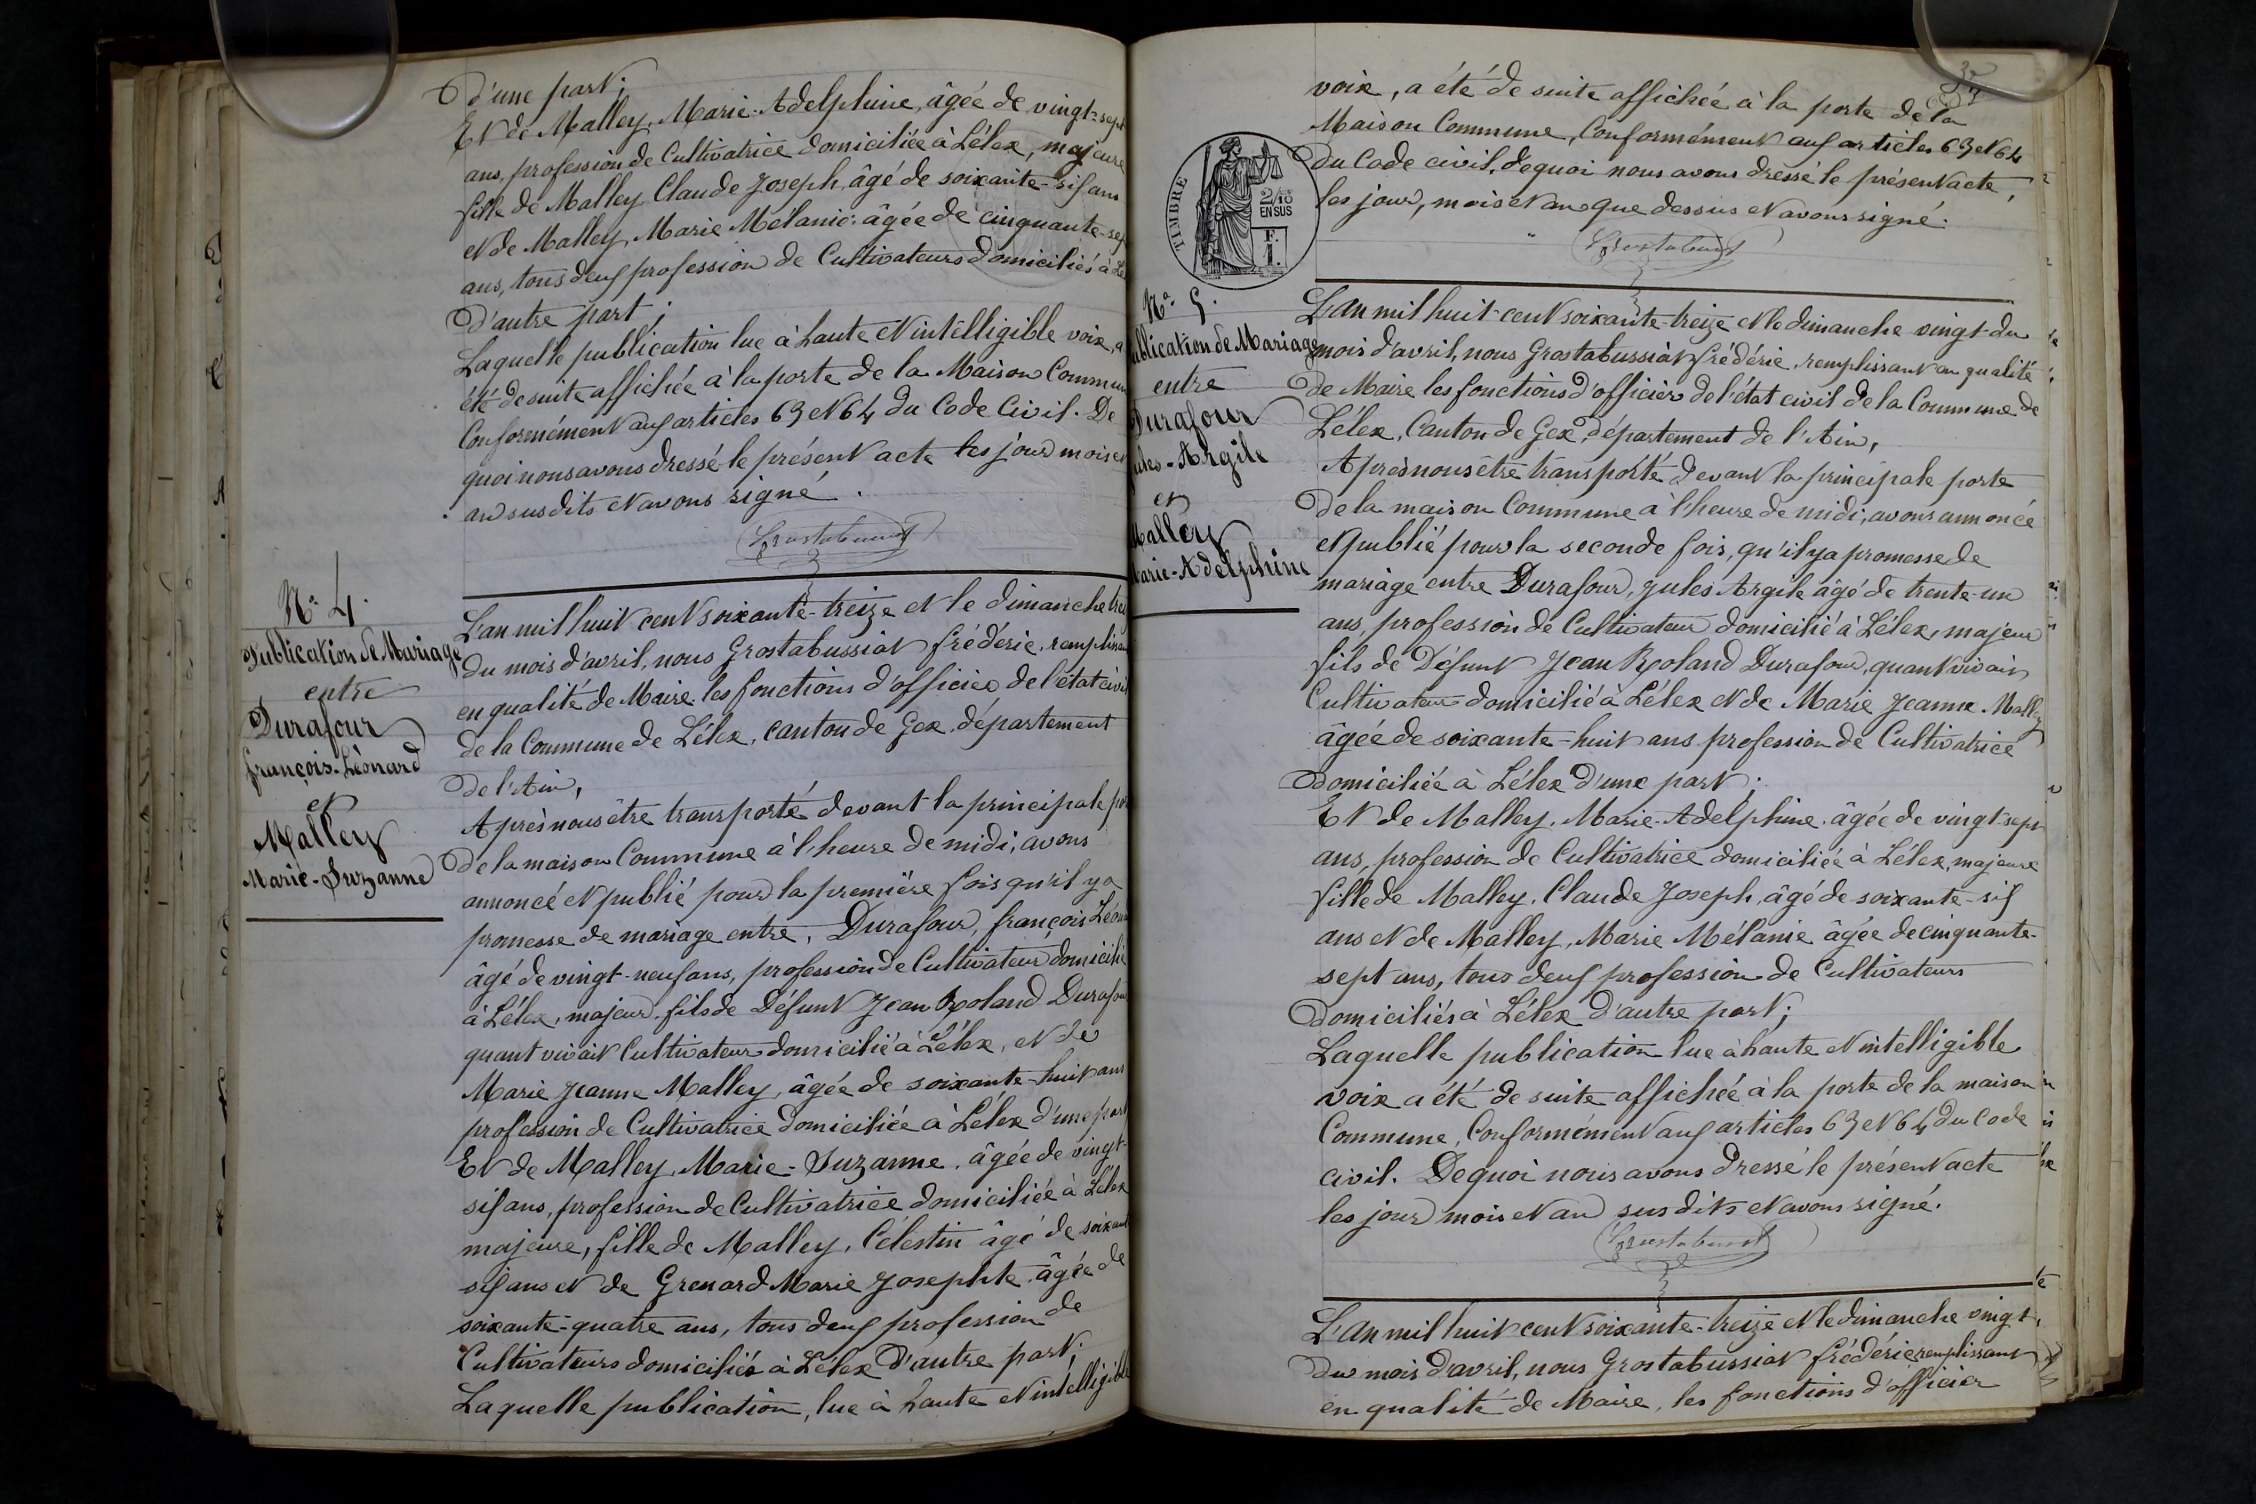 d'une part;
Et de Malley, Marie-Adelphine, âgée de vingt-sept
ans, profession de Cultivatrice domiciliée à Lélex, majeure
fille de Malley Claude Joseph, âgé de soixante-six ans
et de Malley, Marie Mélanie âgée de cinquante-sep
ans, tous deux profession de Cultivateurs domiciliés à Lé
d'autre part;
Laquelle publication lue à haute et intelligible voix, a
été de suite affichée à la porte de la Maison Commun
Conformément aux articles 63 et 64 du Code Civil. De
quoi nous avons dressé le présent acte les jour mois et
an susdits et avons signé.
Grostabussiat
N° 4.
Publication de Mariage
entre
Durafour
françois-Léonard
et
Malley
Marie-Suzanne
L'an mil huit cent soixante-treize et le dimanche trei
du mois d'avril, nous Grostabussiat frédéric, remplissan
en qualité de Maire les fonctions d'officier de l'état civil
de la Commune de Lélex, canton de Gex, département
de l'Ain,
Après nous être transporté devant la principale por
de la maison Commune à l'heure de midi, avons
annoncé et publié pour la première fois qu'il y a
promesse de mariage entre, Durafour, françois Léon
âgé de vingt-neuf ans, profession de Cultivateur domicilié
à Lélex, majeur, fils de Défunt Jean Roland Durafour
quant vivait Cultivateur domicilié à Lélex, et de
Marie Jeanne Malley, âgée de soixante-huit ans
profession de Cultivatrice domiciliée à Lélex d'une part
Et de Malley, Marie-Suzanne, âgée de vingt-
six ans, profession de Cultivatrice domiciliée à Lélex
majeure, fille de Malley, Célestin âgé de soixant
six ans et de Grenard Marie Josephte âgée de
soixante-quatre ans, tous deux profession de
Cultivateurs domiciliés à Lélex d'autre part;
Laquelle publication, lue à haute et intelligible
voix, a été de suite affichée à la porte de la
Maison Commune, Conformément aux articles 63 et 64
du Code civil, de quoi nous avons dressé le présent acte,
les jour, mois et an que dessus et avons signé.
Grostabussiat
TIMBRE
2/10
EN SUS
F.
1.
N° 5.
ublication de Mariage
entre
Durafour
ules-Argile
et
Malley
Marie-Adelphine
L'An mil huit-cent soixante-treize et le dimanche vingt du
mois d'avril, nous Grostabussiat frédéric, remplissant en qualité
de Maire les fonctions d'officier de l'état civil de la Commune de
Lélex, Canton de Gex, département de l'Ain,
Après nous être transporté devant la principale porte
de la maison Commune à l'heure de midi, avons annoncé
et publié pour la seconde fois, qu'il y a promesse de
mariage entre Durafour, Jules Argile âgé de trente-un
ans, profession de Cultivateur domicilié à Lélex, majeur
fils de Défunt Jean Roland Durafour, quant vivait
Cultivateur domicilié à Lélex et de Marie Jeanne Malley
âgée de soixante-huit ans profession de Cultivatrice
domiciliée à Lélex d'une part;
Et de Malley, Marie-Adelphine, âgée de vingt-sept
ans, profession de Cultivatrice domiciliée à Lélex, majeure
fille de Malley, Claude Joseph, âgé de soixante-six
ans et de Malley, Marie Mélanie âgée de cinquante-
sept ans, tous deux profession de Cultivateurs
domiciliés à Lélex d'autre part;
Laquelle publication lue à haute et intelligible
voix a été de suite affichée à la porte de la maison
Commune, Conformément aux articles 63 et 64 du Code
civil. De quoi nous avons dressé le présent acte
les jour mois et an susdits et avons signé.
Grostabussiat
L'An mil huit cent soixante-treize et le dimanche vingt,
du mois d'avril, nous Grostabussiat frédéric remplissant
en qualité de Maire, les fonctions d'officier